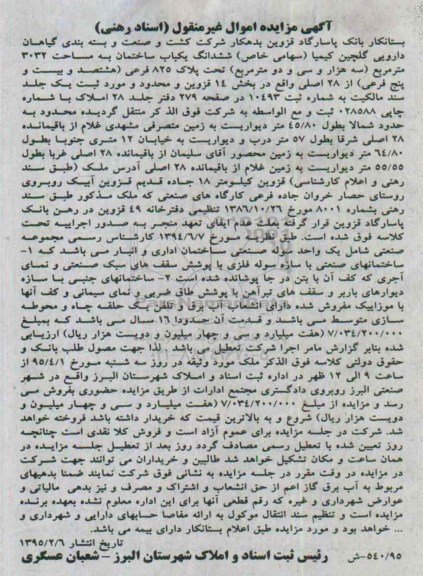 آگهی مزایده اموال غیرمنقول (اسناد رهنی)
بستانکار بانک پاسارگاد قزوین بدهکار شرکت کشت و صنعت و بسته بندی گیاهان
دارویی گلچین کیمیا (سهامی خاص) ششدانگ یکباب ساختمان به مساحت ۳۰۳۲
مترمربع (سه هزار و سی و دو مترمربع) تحت پلاک ۸۲۵ فرعی (هشتصد و بیست و
پنج فرعی) از ۲۸ اصلی واقع در بخش ۱۴ قزوین و محدود و مورد ثبت یک جلد
سند مالکیت به شماره ثبت ۱۰۴۹۳ در صفحه ۲۷۹ دفتر جلد ۲۸ املاک با شماره
چاپی ۰۲۸۵۸۸ ثبت و مع الواسطه به شرکت فوق الذکر منتقل گردیده محدود به
حدود شمالا بطول ۴۵/۸۰ متر دیواریست به زمین متصرفی مشهدی غلام از باقیمانده
۲۸ اصلی شرقا بطول ۵۷ متر درب و دیواریست به خیابان ۱۲ متری جنوبا بطول
۶۴/۸۰ متر دیواریست به زمین محصور آقای سلیمان از باقیمانده ۲۸ اصلی غربا بطول
۵۵/۵۵ متر دیواریست به زمین غلام از باقیمانده ۲۸ اصلی آدرس ملک (طبق سند
رهنی و اعلام کارشناسی) قزوین کیلومتر ۱۸ جاده قدیم قزوین آبیک روبروی
روستای حصار خروان جاده فرعی کارگاه های صنعتی که ملک مذکور طبق سند
رهنی بشماره ۸۰۰۱ مورخ ۱۳۸۶/۱۰/۲۶ تنظیمی دفترخانه ۴۹ قزوین در رهن بانک
پاسارگاد قزوین قرار گرفته بعلت عدم ایفای تعهد منجر به صدور اجراییه تحت
کلاسه فوق شده است. طبق نظریه مورخ ۱۳۹۴/۶/۷ کارشناس رسمی مجموعه
صنعتی شامل یک واحد سوله صنعتی ساختمان اداری و انبار می باشد که ۱-
ساختمانهای صنعتی با سازه سوله فلزی با پوشش سقف های سبک صنعتی و نمای
آجری که کف آن با بتن در جا پوشانده شده است ۲- ساختمانهای جنبی با سازه
دیوارهای باربر و سقف های تیرآهن با پوشش طاق ضربی و نمای سیمانی و کف آنها
با موزاییک مفروش شده دارای انشعاب آب برق و تلفن یک حلقه چاه و محوطه
سازی متوسط می باشند و قدمت آن حدودا ۱۶ سال می باشد که بمبلغ
۷/۰۳۴/۲۰۰/۰۰۰ (هفت میلیارد و سی و چهار میلیون و دویست هزار ریال) ارزیابی
شده بنابر گزارش مامر اجرا شرکت تعطیل می باشد. لذا جهت وصول طلب بانک و
حقوق دولتی کلاسه فوق الذکر ملک مورد وثیقه در روز سه شنبه مورخ ۹۵/۴/۱ از
ساعت ۹ الی ۱۲ ظهر در اداره ثبت اسناد و املاک شهرستان البرز واقع در شهر
صنعتی البرز روبروی دادگستری مجتمع ادارات از طریق مزایده حضوری بفروش می
رسد و مزایده از مبلغ ۷/۰۳۴/۲۰۰/۰۰۰ (هفت میلیارد و سی و چهار میلیون و
دویست هزار ریال) شروع و به بالاترین قیمت که خریدار داشته باشد فروخته خواهد
شد. شرکت در جلسه مزایده برای عموم آزاد است و فروش کلا نقدی است چنانچه
روز تعیین شده با تعطیل رسمی مصادف گردد روز بعد از تعطیل جلسه مزایده در
همان ساعت و مکان تشکیل خواهد شد طالبین و خریداران می توانند جهت شرکت
در مزایده در وقت مقرر در جلسه مزایده به نشانی فوق شرکت نمایند ضمنا بدهیهای
مربوط به آب برق گاز اعم از حق انشعاب و اشتراک و مصرف و نیز بدهی مالیاتی و
عوارض شهرداری و غیره که رقم قطعی آنها برای این اداره معلوم نشده بعهده برنده
مزایده است و تنظیم سند انتقال موکول به ارائه مفاصا حسابهای دارایی و شهرداری و
... خواهد بود و مورد مزایده طبق اعلام بستانکار دارای بیمه می باشد.
تاریخ انتشار ۱۳۹۵/۲/۶
۵۴۰/۹۵-ش رئیس ثبت اسناد و املاک شهرستان البرز - شعبان عسگری